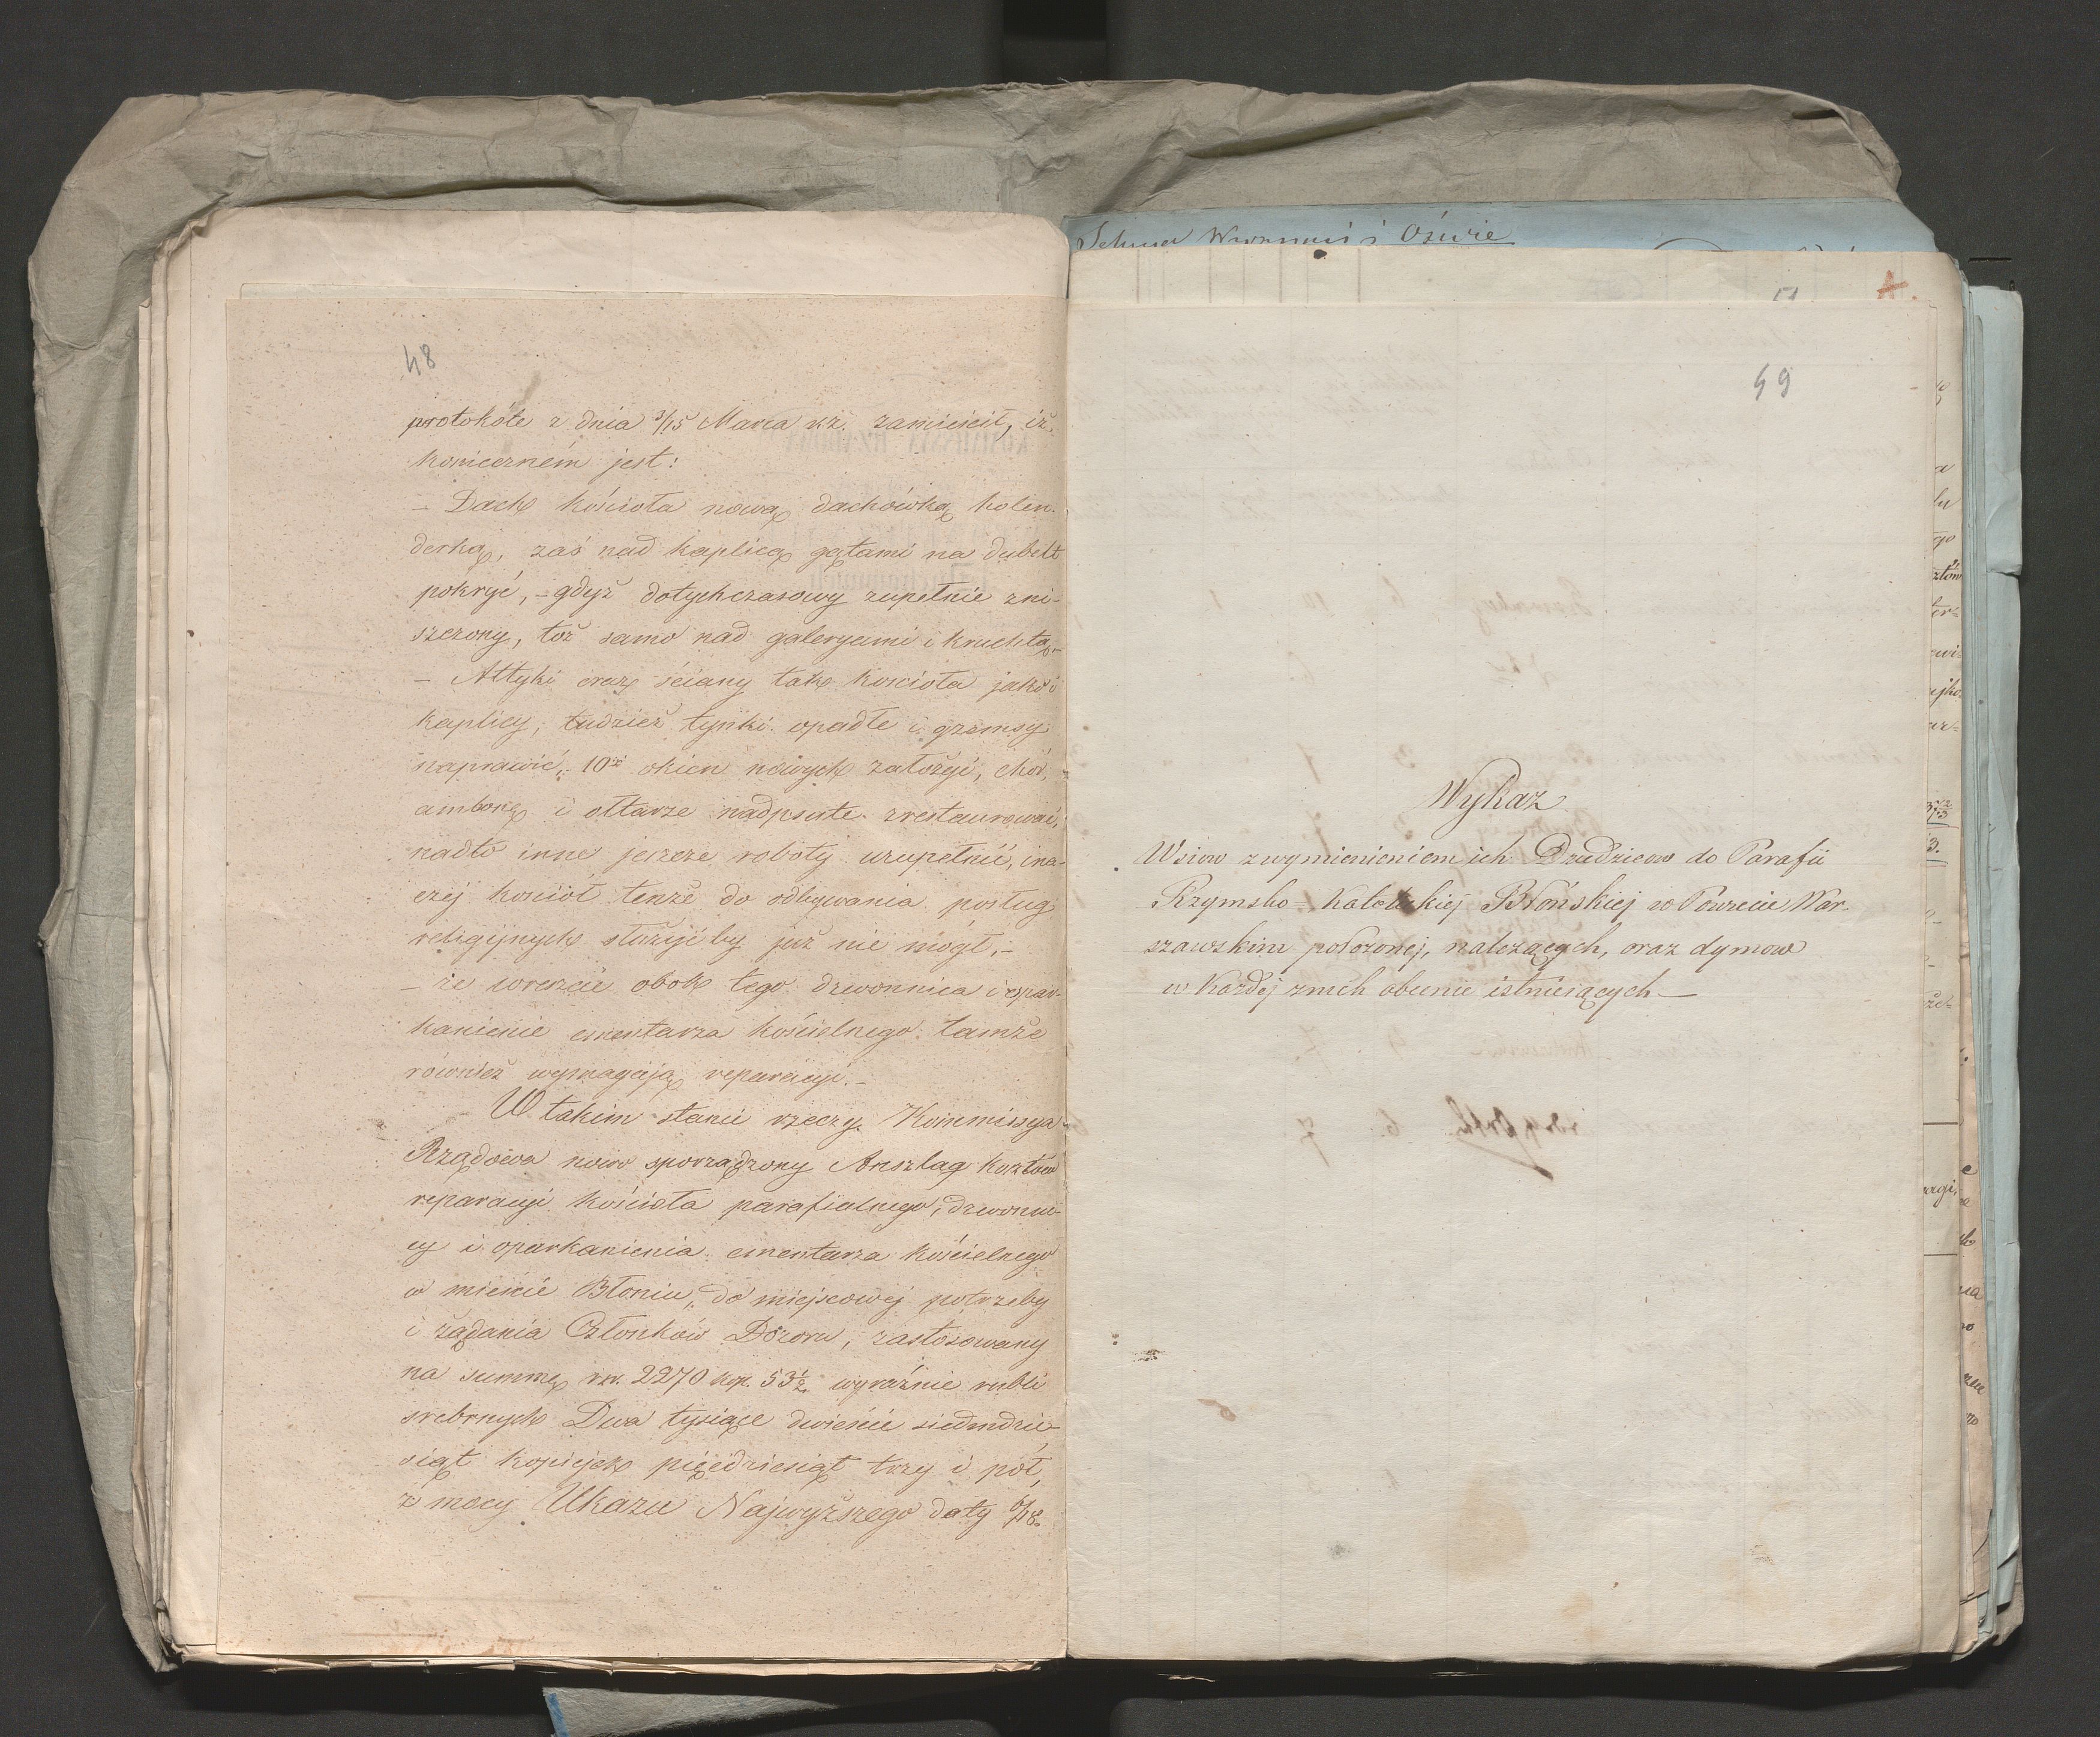 48
protokóle z dnia 3/15 Marca r.z. zamieścił, iż
konieczném jest:
– Dach kościoła nową dachówką holen-
derką, zaś nad kaplicą gątami na dubelt
pokryć, – gdyż dotychczasowy zupełnie zni-
szczony, toż samo nad galeryami i kruchtą,–
– Attyki oraz ściany tak kościoła jako i
kaplicy, tudzież tynki opadłe i gzemsy
naprawić, 10ć okien nowych założyć, chór,
ambonę i ołtarze nadpsute zrestaurować,
nadto inne jeszcze roboty uzupełnić, ina-
czej kościół tenże do odbywania posług
religijnych służyćby już nie mógł,–
– że wreszcie obok tego dzwonnica i opar-
kanienie cmentarza kościelnego tamże
również wymagają reparacyi.–
W takim stanie rzeczy Kommissya
Rządowa nowo sporządzony Anszlag kosztów
reparacyi kościoła parafialnego, dzwonni-
cy i oparkanienia cmentarza kościelnego
w mieście Błoniu, do miejscowej potrzeby
i żądania Członków Dozoru, zastosowany
na summę rsr. 2270 kop. 53½ wyraźnie rubli
srebrnych Dwa tysiące dwieście siedmdzie-
siąt kopiejek pięćdziesiąt trzy i pół,
z mocy Ukazu Najwyższego daty 6/18.
A.
51
49
Wykaz
Wsiow z wymienieniem ich Dziedziców do Parafii
Rzymsko-Katolickiej Błońskiej w Powiecie War-
szawskim położonej, należących, oraz dymow
w każdej z nich obecnie istnieiących —